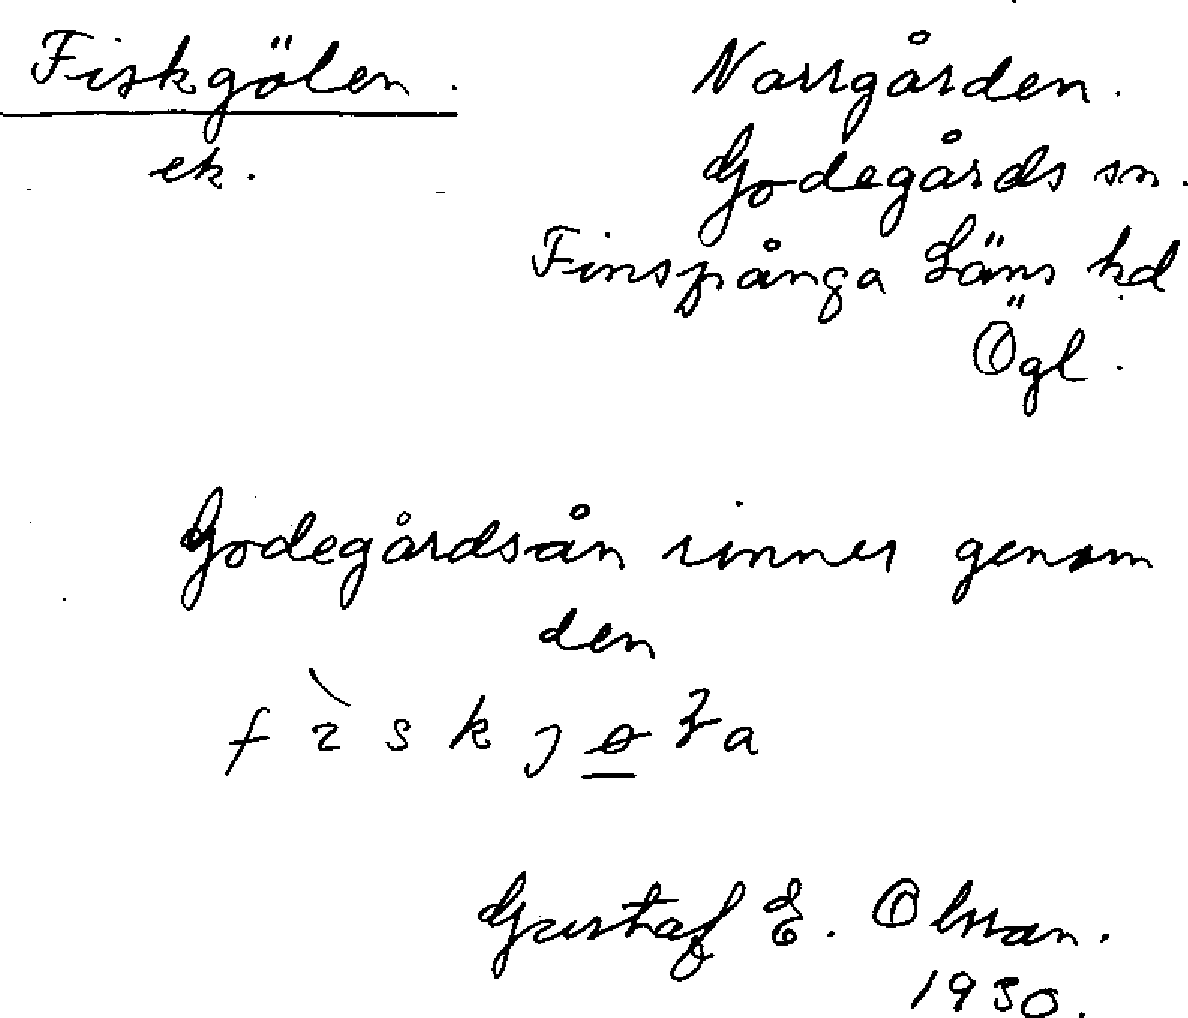 Fiskgölen.
ek.
Norrgården.
Godegårds sn.
Finspånga Läns hd
Ögl.
Godegårdsån rinner genom
den
Gustaf E. Olsson.
1930.